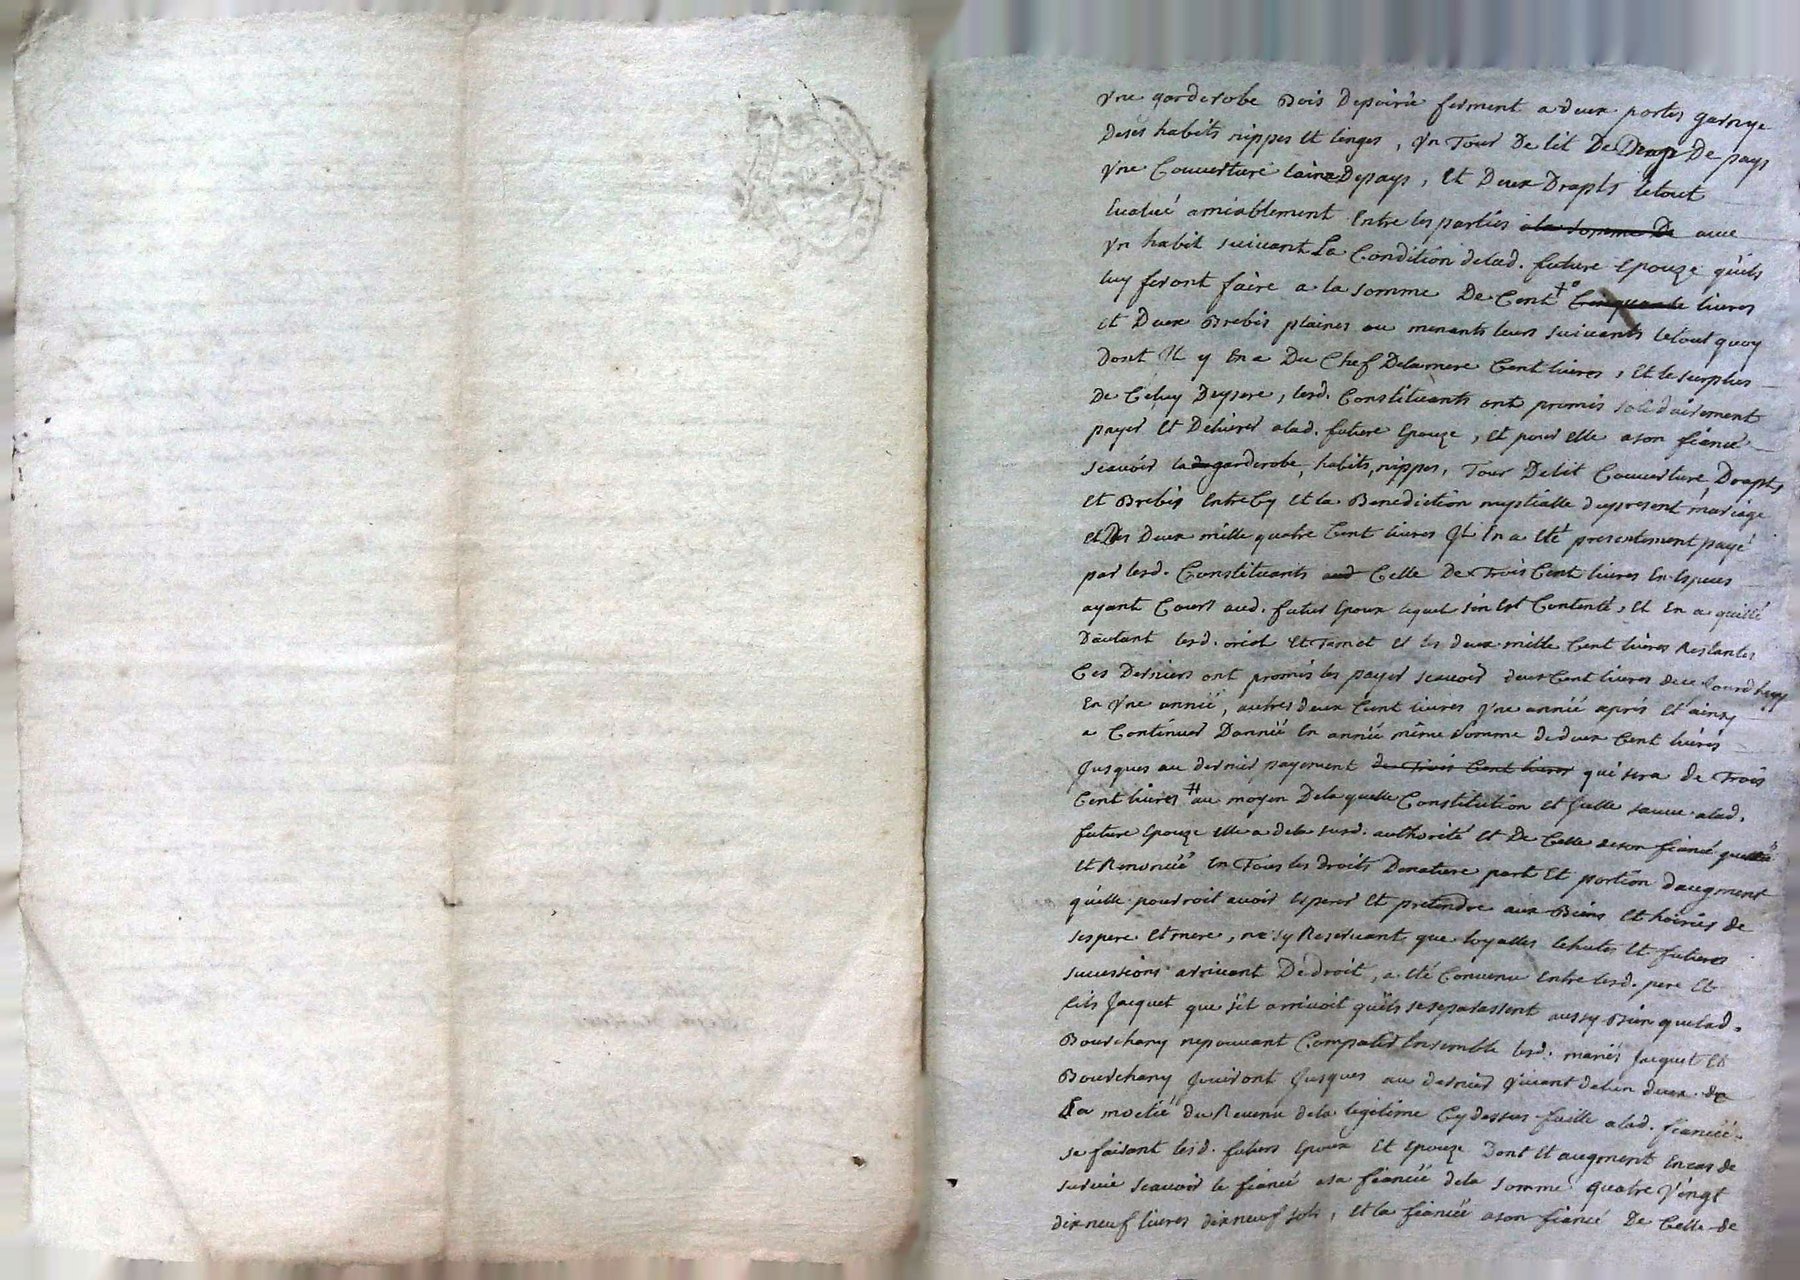 Vne garderobe Bois Depoirié ferment a deux portes garnye
Deses habits nippes et linges, Vn Tour De lit De Drap De pays
Vne Couverture laine Depays, et Deux Drapts letout
Evalué amiablement Entre les parties a la somme De avec
Vn habit suivant La Condition delad. future Epouze qu'ils
luy feront faire a la somme De Cent Cinquante livres
et Deux Brebis plaines ou menants leurs suivants letout quoy
Dont Il y En a Du Chef Delamere Cent livres, et le surplus
De Celuy Dupere, lesd. Constituants ont promis solidairement
payer et Delivrer alad. future Epouze, et pour elle a son fiancé
scavoir la garderobe, habits, nippes, Tour Delit Couverture Drapts
et Brebis Entre Cy et la Benediction nuptialle dupresent mariage
et Des Deux mille quatre Cent livres Il En a eté presentement payé
par lesd. Constituants aud Celle De Trois Cent livres En Especes
ayant Cours aud. futur Epoux lequel s'en est Contenté, et En a quitté
D'autant lesd. oriol et Jamet et les deux mille Cent livres Restantes
Ces Derniers ont promis les payer scavoir deux Cent livres dece Jourdhuy
En Vne année, autres deux Cent livres Vne année après et ainsy
a Continuer D'année En année même Somme de deux Cent livres
Jusques au dernier payement de Trois Cent livres qui sera de Trois
Cent livres au moyen Dela quelle Constitution et Icelle sauve alad.
future Epouze elle a dela susd. authorité et De Celle deson fiancé quitté
et Renoncé En Tous les droits Denature part et portion d'augment
qu'elle pourroit avoir Esperer et pretendre aux Biens et hoiries de
ses pere et mere, ne sy Reservant que loyalles Echutes et futures
successions arrivant De droit, a eté Convenu Entre lesd. pere et
fils Jacquet que s'il arrivoit qu'ils se separassent aussy Bien quelad.
Bourchany nepouvant Compatir Ensemble lesd. mariés Jacquet et
Bourchany Jouiront Jusques au dernier Vivant delun deux de
La moetié du Revenu dela legitime Cy dessus faitte alad. fiancée.
se faisant lesd. futurs Epoux et Epouze Dont et augment En cas de
survie scavoir le fiancé a sa fiancée dela somme quatre Vingt
dix neuf livres dix neuf sols, et la fiancée a son fiancé De Celle de